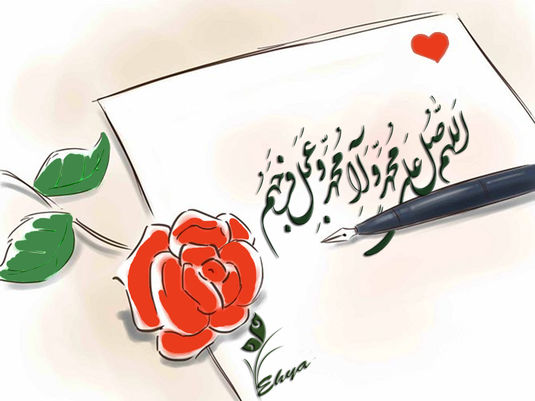 اللهم صل علی محمد و آل محمد و عجل فرجهم
Ehya